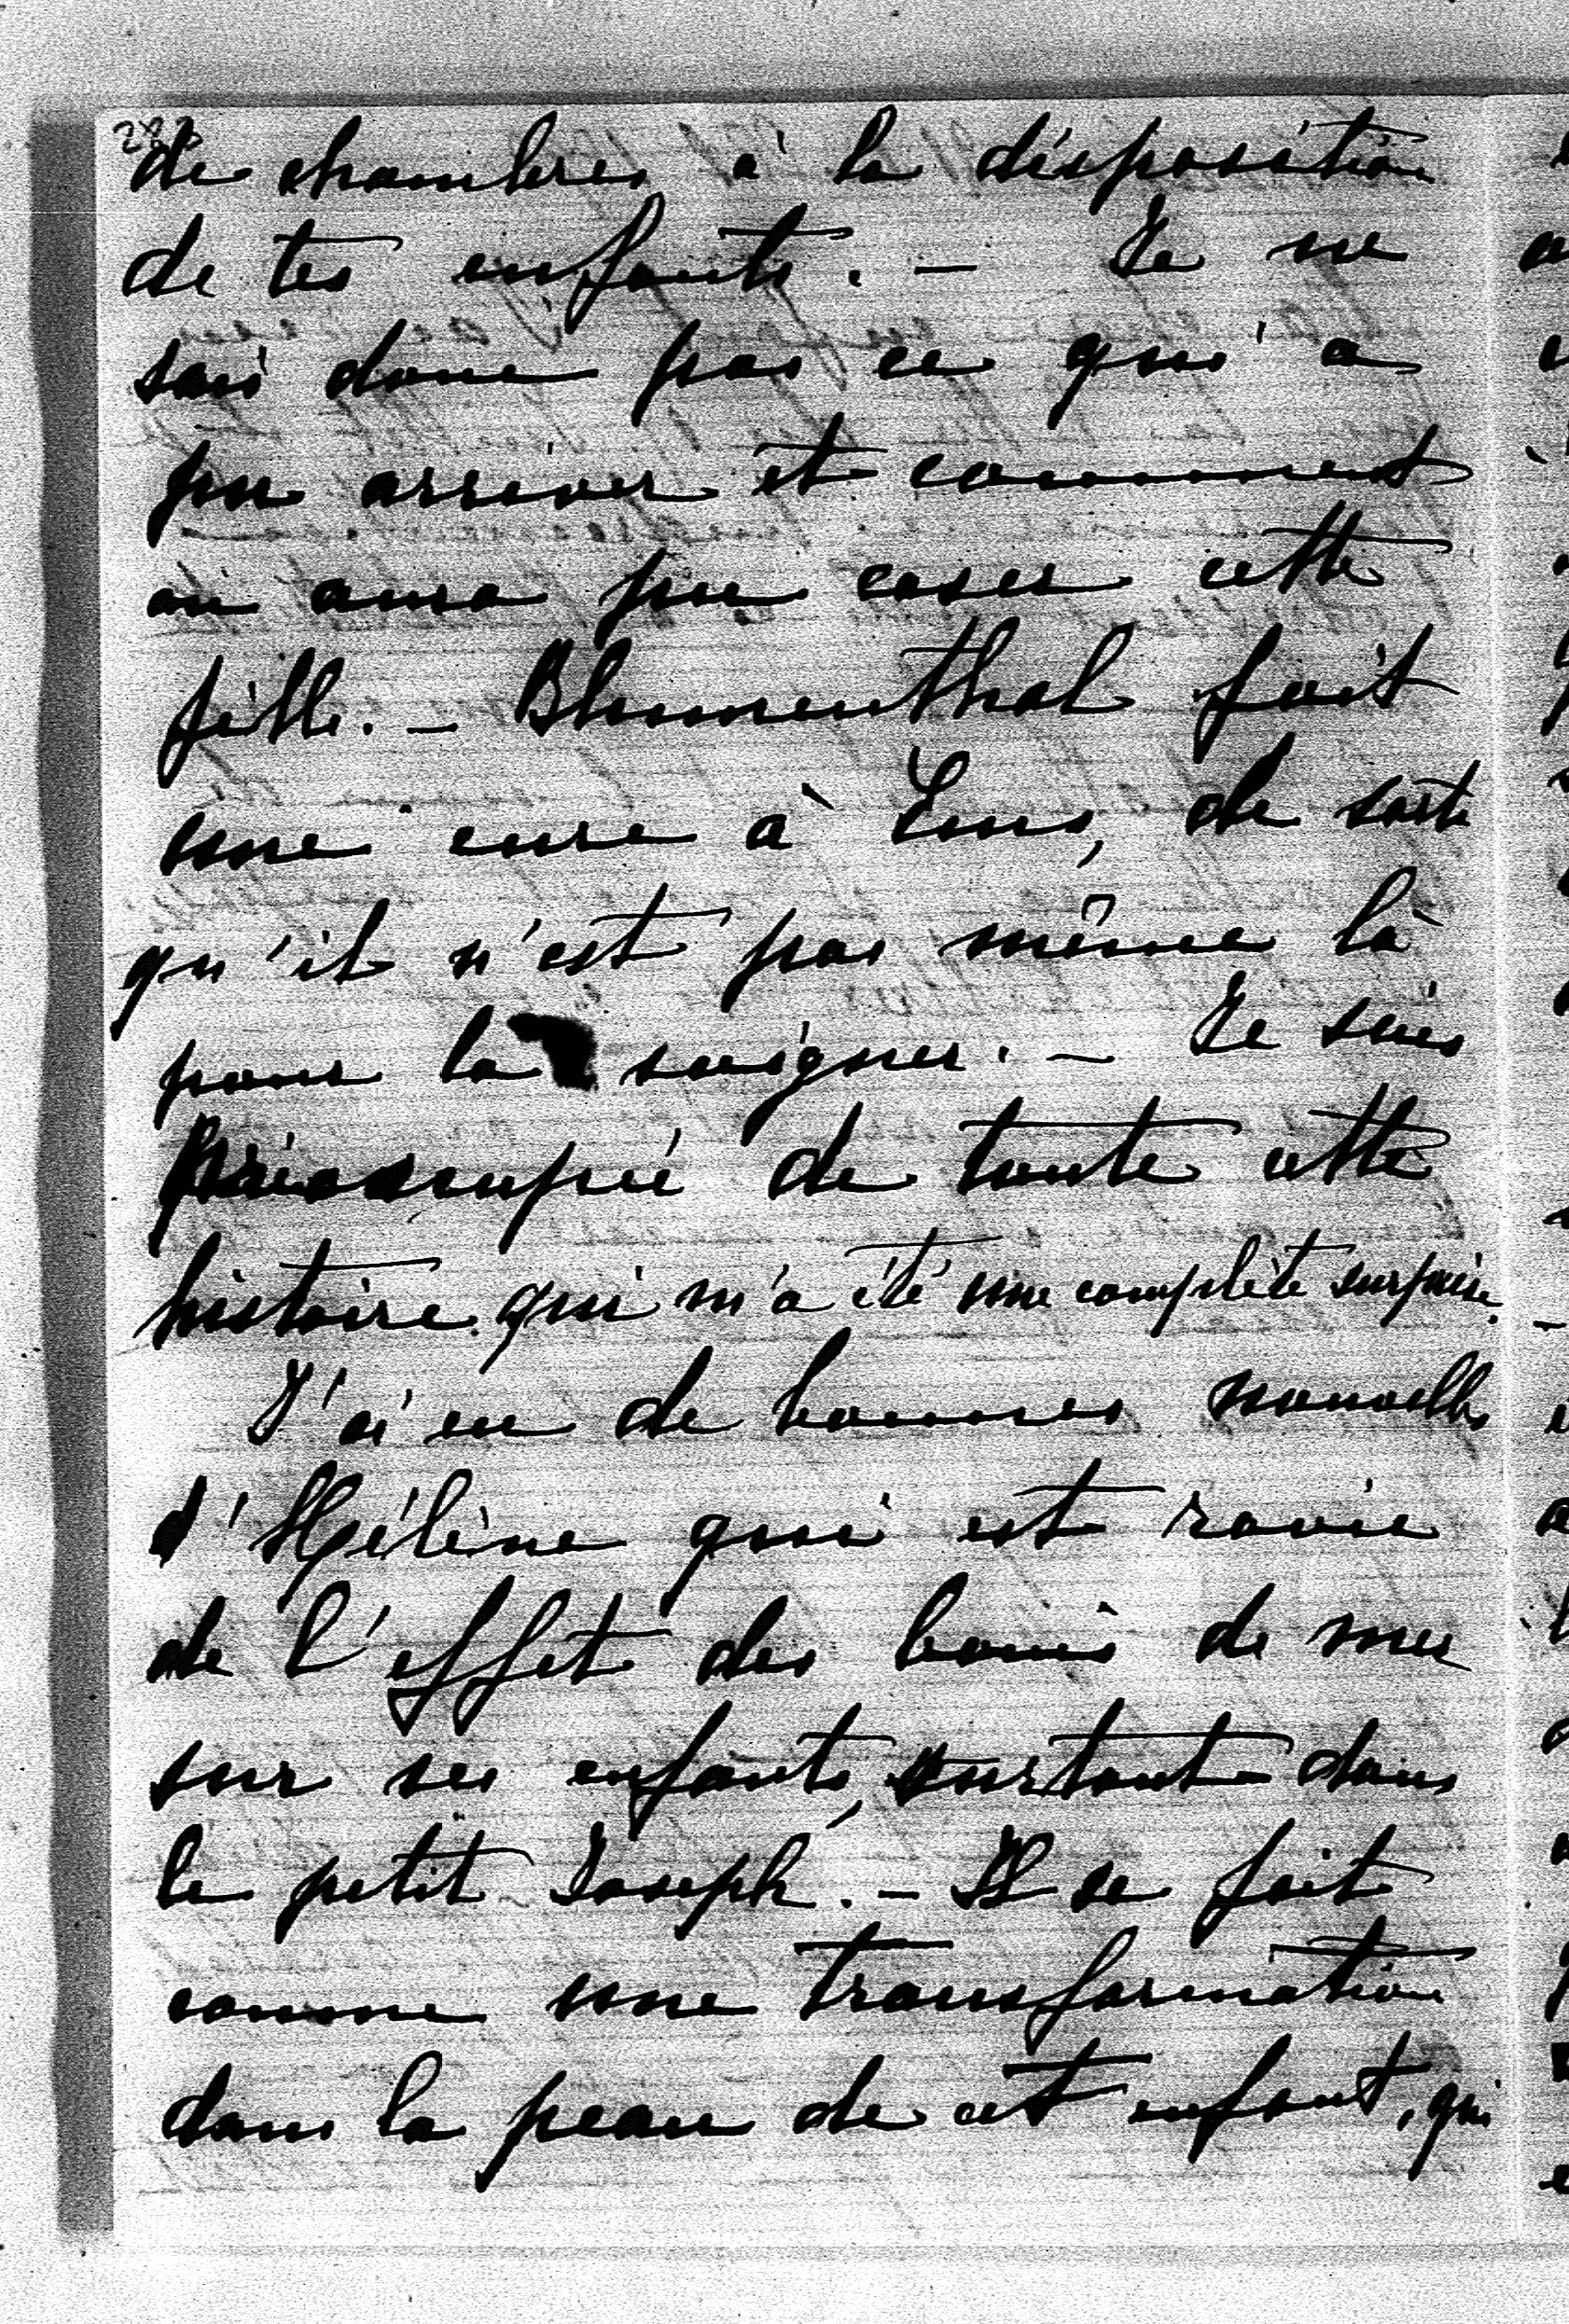 de chambres à la disposition
de tes enfants. — Je ne
sais donc pas ce qui a
pu arriver et comment
on aura pu caser cette
fille. — Blumenthal fait
une cure à Ems, de sorte
qu'il n'est pas même là
pour la soigner. — Je suis
préoccupée de toute cette
histoire qui m'a été une complète surprise. —
J'ai eu de bonnes nouvelles
d'Hélène qui est ravie
de l'effet des bains de mer
sur ses enfants, surtout dans
le petit Joseph. — Il se fait
comme une transformation
dans la peau de cet enfant, qui